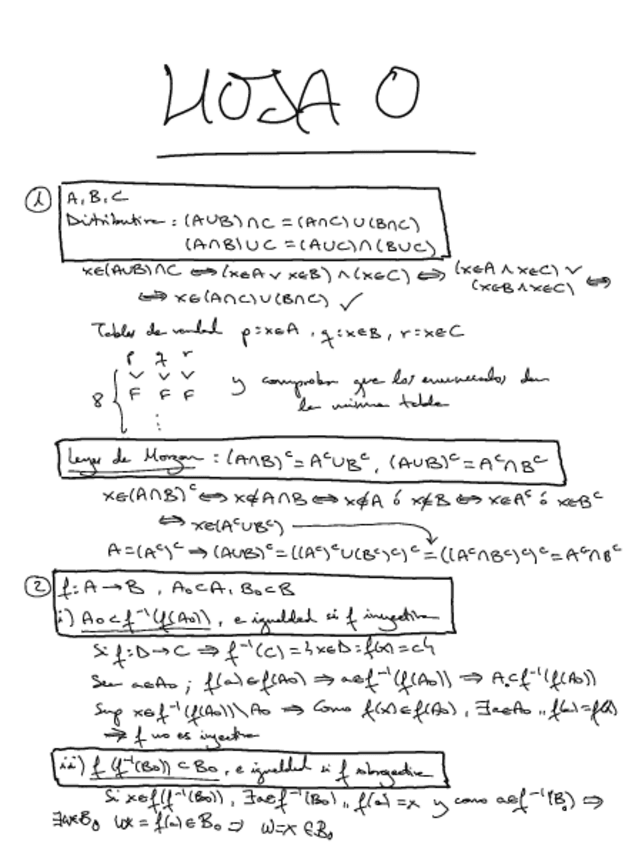 HOJA 0
1 A, B, C
Distributiva: (A∪B)∩C = (A∩C)∪(B∩C)
(A∩B)∪C = (A∪C)∩(B∪C)
x∈(A∪B)∩C ⟺ (x∈A ∨ x∈B) ∧ (x∈C) ⟺ (x∈A ∧ x∈C) ∨ (x∈B ∧ x∈C) ⟺
⟺ x∈(A∩C)∪(B∩C) ✓
Tablas de verdad p=x∈A, q=x∈B, r=x∈C
p q r
V V V
8 F F F y comprobar que los enunciados dan
la misma tabla
⋮
Leyes de Morgan: (A∩B)ᶜ = Aᶜ∪Bᶜ, (A∪B)ᶜ = Aᶜ∩Bᶜ
x∈(A∩B)ᶜ ⟺ x∉A∩B ⟺ x∉A ó x∉B ⟺ x∈Aᶜ ó x∈Bᶜ
⟺ x∈(Aᶜ∪Bᶜ)
A=(Aᶜ)ᶜ → (A∪B)ᶜ = ((Aᶜ)ᶜ∪(Bᶜ)ᶜ)ᶜ = ((Aᶜ∩Bᶜ)ᶜ)ᶜ = Aᶜ∩Bᶜ
2 f: A → B, A₀⊂A, B₀⊂B
i) A₀⊂f⁻¹(f(A₀)), e igualdad si f inyectiva
Si f: D → C ⇒ f⁻¹(C) = {x∈D : f(x)=c}
Sea a∈A₀; f(a)∈f(A₀) ⇒ a∈f⁻¹(f(A₀)) ⇒ A₀⊂f⁻¹(f(A₀))
Sup x∈f⁻¹(f(A₀))\A₀ ⇒ Como f(x)∈f(A₀), ∃a∈A₀,, f(a)=f(x)
⇒ f no es inyectiva
ii) f(f⁻¹(B₀))⊂B₀, e igualdad si f sobreyectiva
Si x∈f(f⁻¹(B₀)), ∃a∈f⁻¹(B₀),, f(a)=x y como a∈f⁻¹(B₀) ⇒
∃w∈B₀ = f(a)∈B₀ ⇒ w=x∈B₀